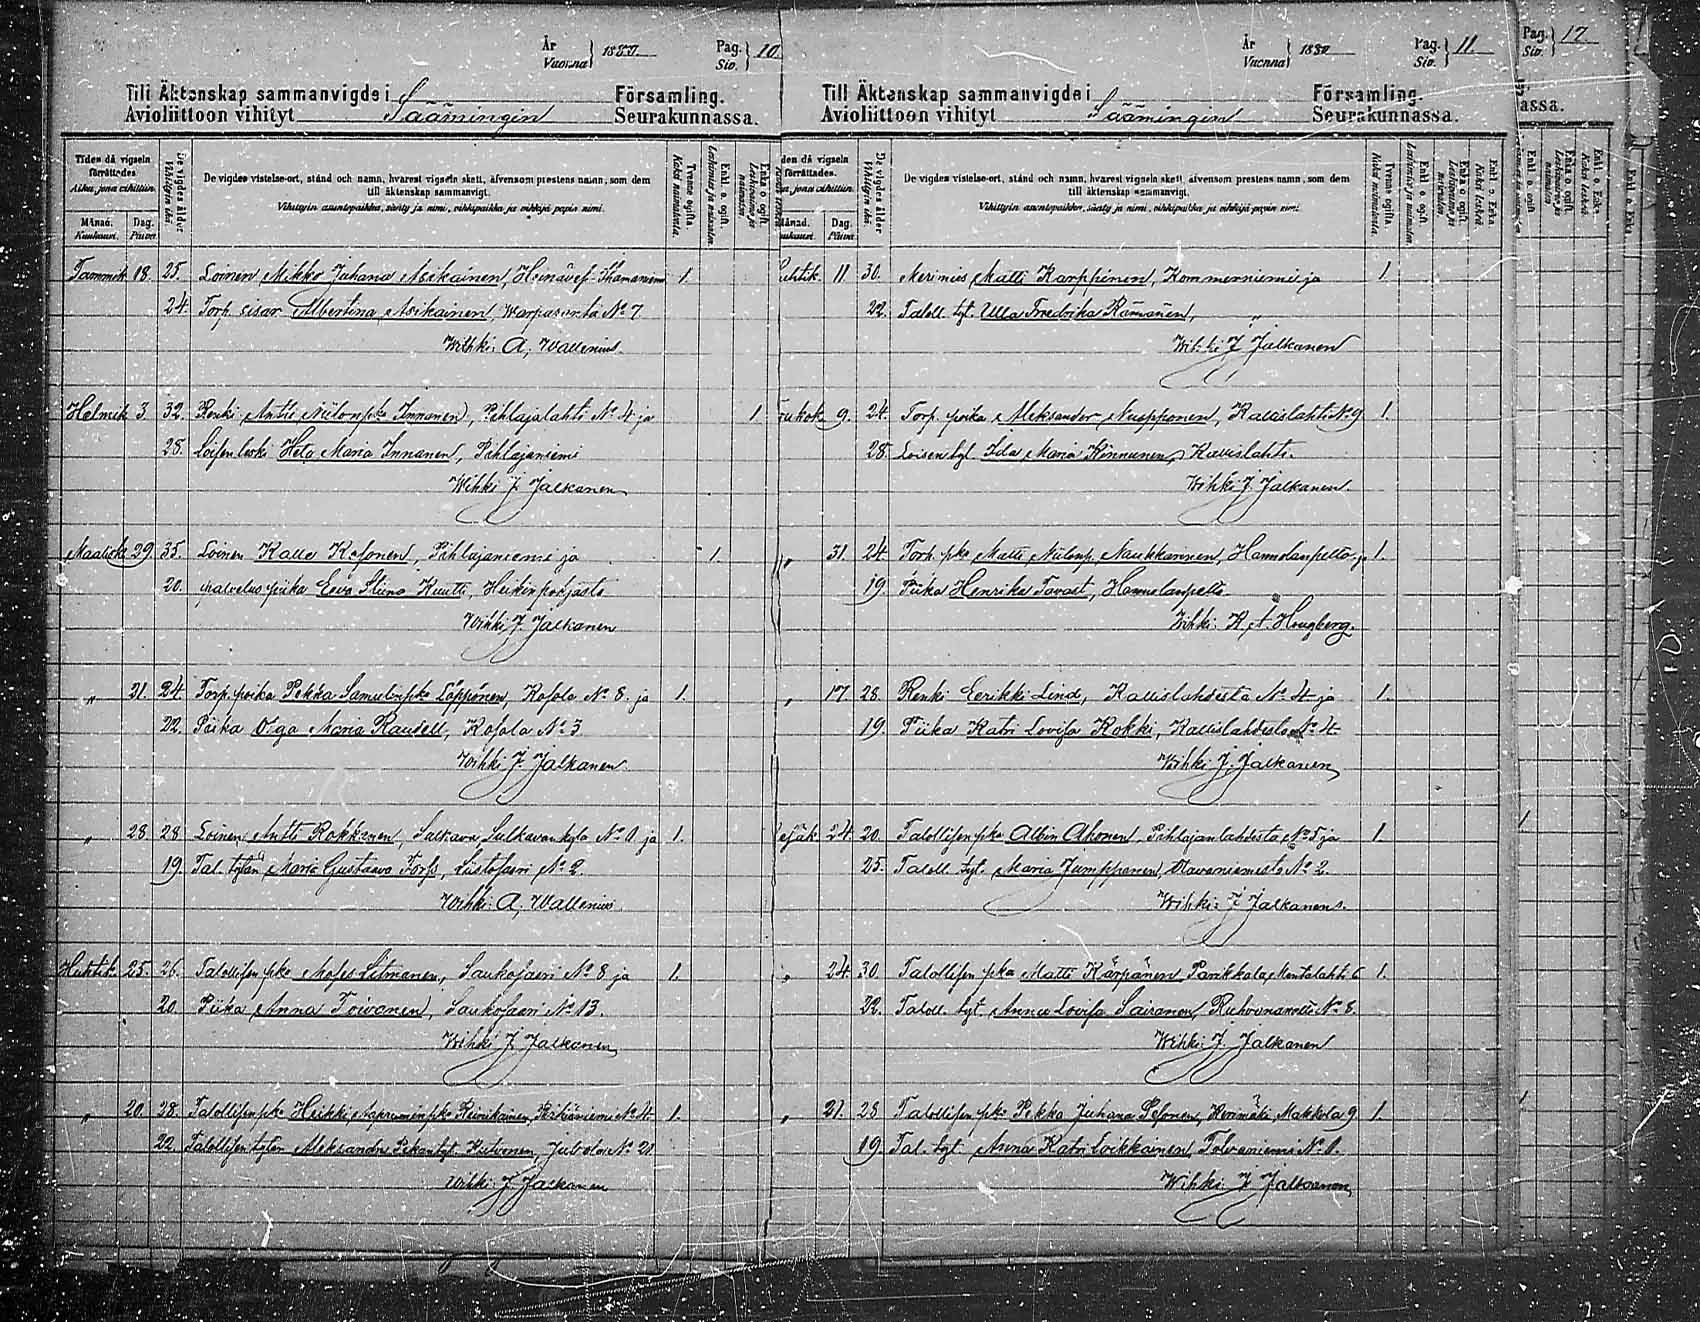 År
Vuonna } 1880
Pag.
Siv. } 10.
Till Äktenskap sammanvigde i Församling.
Avioliittoon vihityt Säämingin Seurakunnassa.
Tiden då vigseln förrättades
Aika, jona vihittiin
Månad.
Kuukausi.
Dag.
Päivä
De vigdes ålder
Vihittyin ikä
De vigdes vistelse-ort, stånd och namn, hvarest vigseln skett, äfvensom prestens namn, som dem
till äktenskap sammanvigt.
Vihittyin asuntopaikka, sääty ja nimi, vihkipaikka ja vihkijä papin nimi.
Tvenne ogifta.
Kaksi naimatonta.
Enkl. o. ogift.
Leskimies ja naimaton
Enka o. ogift.
Leskivaimo ja naimaton
Tammik 18. 25. Loinen Mikko Juhana Asikainen, Heinävesi 1.
24. Torp. sisar Albertina Asikainen, Warparanta No 7
Wihki: A. Wallenius.
Helmik 3 32. Renki Antti Niilonpka Innanen, Pihlajalahti No 4 ja 1.
28. Loisen leski Helo Maria Innanen, Pihlajaniemi
Wihki J. Jalkanen
Maalisk 29. 35. Loinen Kalle Kosonen, Pihlajaniemi ja 1.
20. palvelus piika Eeva Stiina Kuutti, Heikinpohjasta
Wihki J. Jalkanen
„ 21. 24. Torp. poika Pekka Samulinpka Löppönen, Kosola No 8. ja 1.
22. Piika Olga Maria Raudell, Kosola No 3
Wihki J. Jalkanen
„ 28 28 Loinen Antti Rokkanen, Sulkava, Sulkavankyla No 1 ja 1.
19. Tal. tytär Maria Gustaava Forss, Liistosaari No 2.
Wihki: A. Wallenius
Huhtik. 25. 26. Talollisen pka Moses Litmanen, Saukosaari No 8 ja 1.
20. Piika Anna Toivonen, Saukosaari No 13.
Wihki J. Jalkanen
„ 20. 28. Talollisen pka Heikki Aapraminpka Reinikainen, No 4. 1.
22. Talollisen tytär Aleksandra Pekantyt. Hulvonen, Juvola No 21
Wihki: J Jalkanen
År
Vuonna } 1880
Pag.
Siv. } 11.
Till Äktenskap sammanvigde i Församling.
Avioliittoon vihityt Säämingin Seurakunnassa.
den då vigseln
förrättades.
Dag.
Päivä
De vigdes ålder
Vihittyin ikä
De vigdes vistelse-ort, stånd och namn, hvarest vigseln skett, äfvensom prestens namn, som dem
till äktenskap sammanvigt.
Vihittyin asuntopaikka, sääty ja nimi, vihkipaikka ja vihkijä papin nimi.
Tvenne ogifta.
Kaksi naimatonta.
Enkl. o. ogift.
Leskimies ja naimaton
Enka o. ogift.
Leskivaimo ja naimaton
Enkl. o. Enka
Kaksi leskeä.
uhtik. 11 30. Merimies Matti Karppinen, Kommerniemi ja 1.
22. Taloll. tyt. Ulla Fredrika Rämänen, „
Wihki J Jalkanen
oukok 9. 24. Torp. poika Aleksander Nuopponen, Kallislahti No 9 1.
28. Loisen tyt. Ida Maria Kinnunen, Kallislahti.
Wihki J. Jalkanen.
„ 31. 24. Torp. pka Matti Niilonp. Naukkarinen, Hannolanpelto ja 1.
19. Piika Henrika Tavast, Hannolanpelto
Wihki: K. A. Hougberg.
„ 17 28. Renki Eerikki Lind, Kallislahdesta No 4 ja 1.
19. Piika Katri Lovisa Kokki, Kallislahdesta No 4
Wihki J. Jalkanen
esäk 24. 20. Talollisen pka Albin Ahonen, Pihlajanlahdesta No 5 ja 1.
25. Taloll. tyt. Maria Jumppanen, No 2.
Wihki: J Jalkanen.
„ 24. 30. Talollisen pka Matti Kärpänen Parikkala, Mentalahti 6 1.
22. Taloll. tyt. Anna Lovisa Sairanen, No 8.
Wihki: J. Jalkanen
„ 21. 28 Talollisen pka Pekka Juhana Sesonen, Kerimäki, Makkola 9 1.
19. Tal. tyt. Anna Katri Loikkainen, Tolvaniemi No 1.
Wihki J Jalkanen
Pag.
Siv. } 12.
assa.